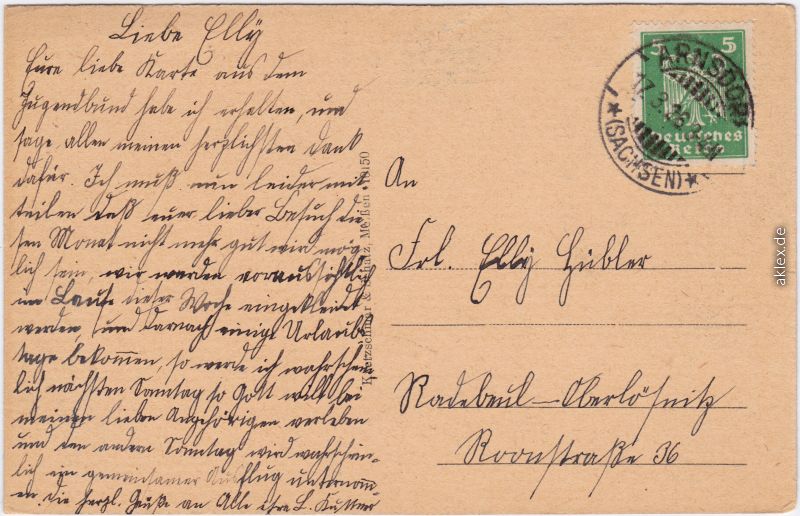 Liebe Elly
Eure liebe Karte aus dem
Jugendbund habe ich erhalten, und
sage allen meinen herzlichsten Dank
dafür. Ich muß nun leider mit
teilen daß euer lieber Besuch die
sen Monat nicht mehr gut wird mög
lich sein, wir werden voraussichtlich
im Laufe dieser Woche eingekleidet
werden und darnach einige Urlaubs
tage bekommen, so werde ich wahrschein
lich nächsten Sonntag so Gott will bei
meinen lieben Angehörigen verleben
und den andern Sonntag wird wahrschein-
lich ein gemeinsamer Ausflug unternom
en. Die herzl. Grüße an Alle
5 5
Deutsches
Reich
ARNSDORF
(SACHSEN)
An
Frl. Elly Hübler
Radebeul-Oberlößnitz
Roonstraße 36
Meißen
aklex.de